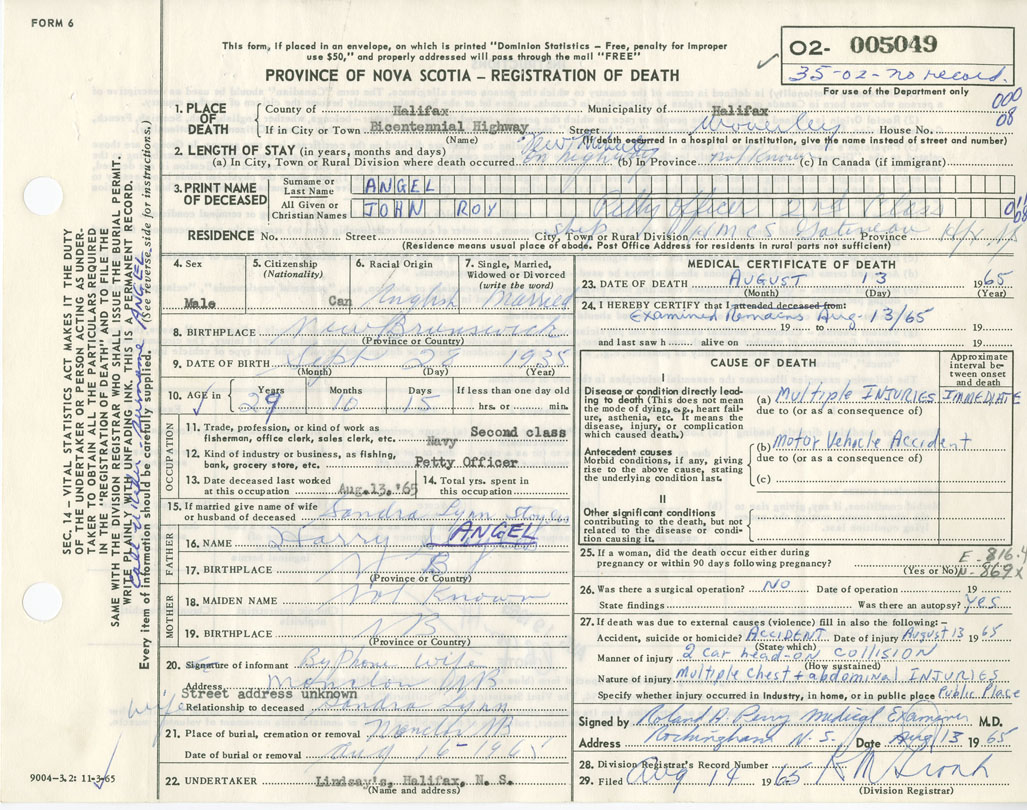 FORM 6
This form, if placed in an envelope, on which is printed "Dominion Statistics – Free, penalty for improper
use $50," and properly addressed will pass through the mail "FREE"
PROVINCE OF NOVA SCOTIA – REGISTRATION OF DEATH
02- 005049
35-02-no record.
For use of the Department only
000
08
1. PLACE OF DEATH
County of Halifax Municipality of Halifax
If in City or Town Bicentennial Highway Street Waverley House No.
(Name) (If death occurred in a hospital or institution, give the name instead of street and number)
2. LENGTH OF STAY (in years, months and days)
(a) In City, Town or Rural Division where death occurred on highway (b) In Province not known (c) In Canada (if immigrant)
3. PRINT NAME OF DECEASED
Surname or Last Name ANGEL
All Given or Christian Names JOHN ROY Petty Officer 2nd Class
RESIDENCE No. Street ship City, Town or Rural Division HMCS Gatineau Province
(Residence means usual place of abode. Post Office Address for residents in rural parts not sufficient)
4. Sex
Male
5. Citizenship
(Nationality)
Can
6. Racial Origin
English
7. Single, Married,
Widowed or Divorced
(write the word)
Married
8. BIRTHPLACE New Brunswick
(Province or Country)
9. DATE OF BIRTH Sept 28 1935
(Month) (Day) (Year)
10. AGE in Years 29 Months 10 Days 15 If less than one day old
hrs. or min.
OCCUPATION
11. Trade, profession, or kind of work as
fisherman, office clerk, sales clerk, etc. Navy Second class
12. Kind of industry or business, as fishing,
bank, grocery store, etc. Petty Officer
13. Date deceased last worked
at this occupation Aug.13,'65
14. Total yrs. spent in
this occupation
15. If married give name of wife
or husband of deceased Sandra Lynn
FATHER
16. NAME Harry ANGEL
17. BIRTHPLACE N B
(Province or Country)
MOTHER
18. MAIDEN NAME Not Known
19. BIRTHPLACE N B
(Province or Country)
20. Signature of informant By Phone wife
Address Moncton NB
Street address unknown
wife Relationship to deceased Sandra Lynn
21. Place of burial, cremation or removal Moncton NB
Date of burial or removal Aug 16 1965
22. UNDERTAKER Lindsay's, Halifax, N. S.
(Name and address)
MEDICAL CERTIFICATE OF DEATH
23. DATE OF DEATH AUGUST 13 1965
(Month) (Day) (Year)
24. I HEREBY CERTIFY that I attended deceased from:
Examined Remains Aug 13/65
19 to 19
and last saw h alive on 19
CAUSE OF DEATH
Approximate interval between onset and death
I
Disease or condition directly leading
to death (This does not mean
the mode of dying, e.g., heart failure,
asthenia, etc. It means the
disease, injury, or complication
which caused death.)
(a) Multiple INJURIES IMMEDIATE
due to (or as a consequence of)
Antecedent causes
Morbid conditions, if any, giving
rise to the above cause, stating
the underlying condition last.
(b) Motor Vehicle Accident
due to (or as a consequence of)
(c)
II
Other significant conditions
contributing to the death, but not
related to the disease or condition
causing it.
25. If a woman, did the death occur either during
pregnancy or within 90 days following pregnancy? (Yes or No)
E-816.4
N-869X
26. Was there a surgical operation? NO Date of operation 19
State findings Was there an autopsy? yes
27. If death was due to external causes (violence) fill in also the following:–
Accident, suicide or homicide? ACCIDENT Date of injury August 13 1965
(State which)
Manner of injury 2 car head-on COLLISION
(How sustained)
Nature of injury Multiple chest + abdominal INJURIES
Specify whether injury occurred in Industry, in home, or in public place Public Place
Signed by Roland A. Perry Medical Examiner M.D.
Address Rockingham N.S. Date Aug 13 1965
28. Division Registrar's Record Number
29. Filed Aug 14 1965
(Division Registrar)
SEC. 14 – VITAL STATISTICS ACT MAKES IT THE DUTY
OF THE UNDERTAKER OR PERSON ACTING AS UNDERTAKER
TO OBTAIN ALL THE PARTICULARS REQUIRED
IN THE "REGISTRATION OF DEATH" AND TO FILE THE
SAME WITH THE DIVISION REGISTRAR WHO SHALL ISSUE THE BURIAL PERMIT.
WRITE PLAINLY WITH UNFADING INK. THIS IS A PERMANENT RECORD.
Every item of information should be carefully supplied. (See reverse side for instructions.)
ANGEL
9004–3.2: 11-3-65